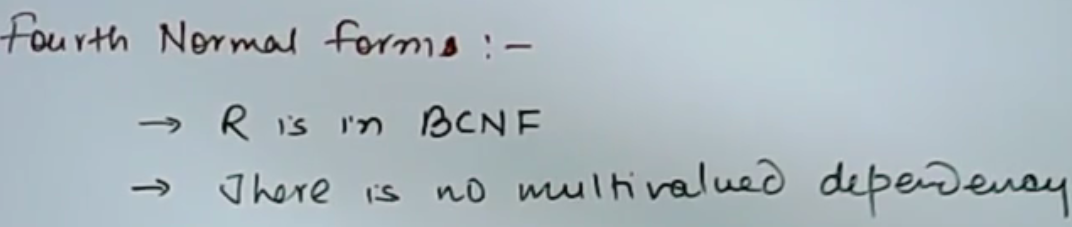 Fourth Normal forms :-
→ R is in BCNF
→ There is no multivalued dependency